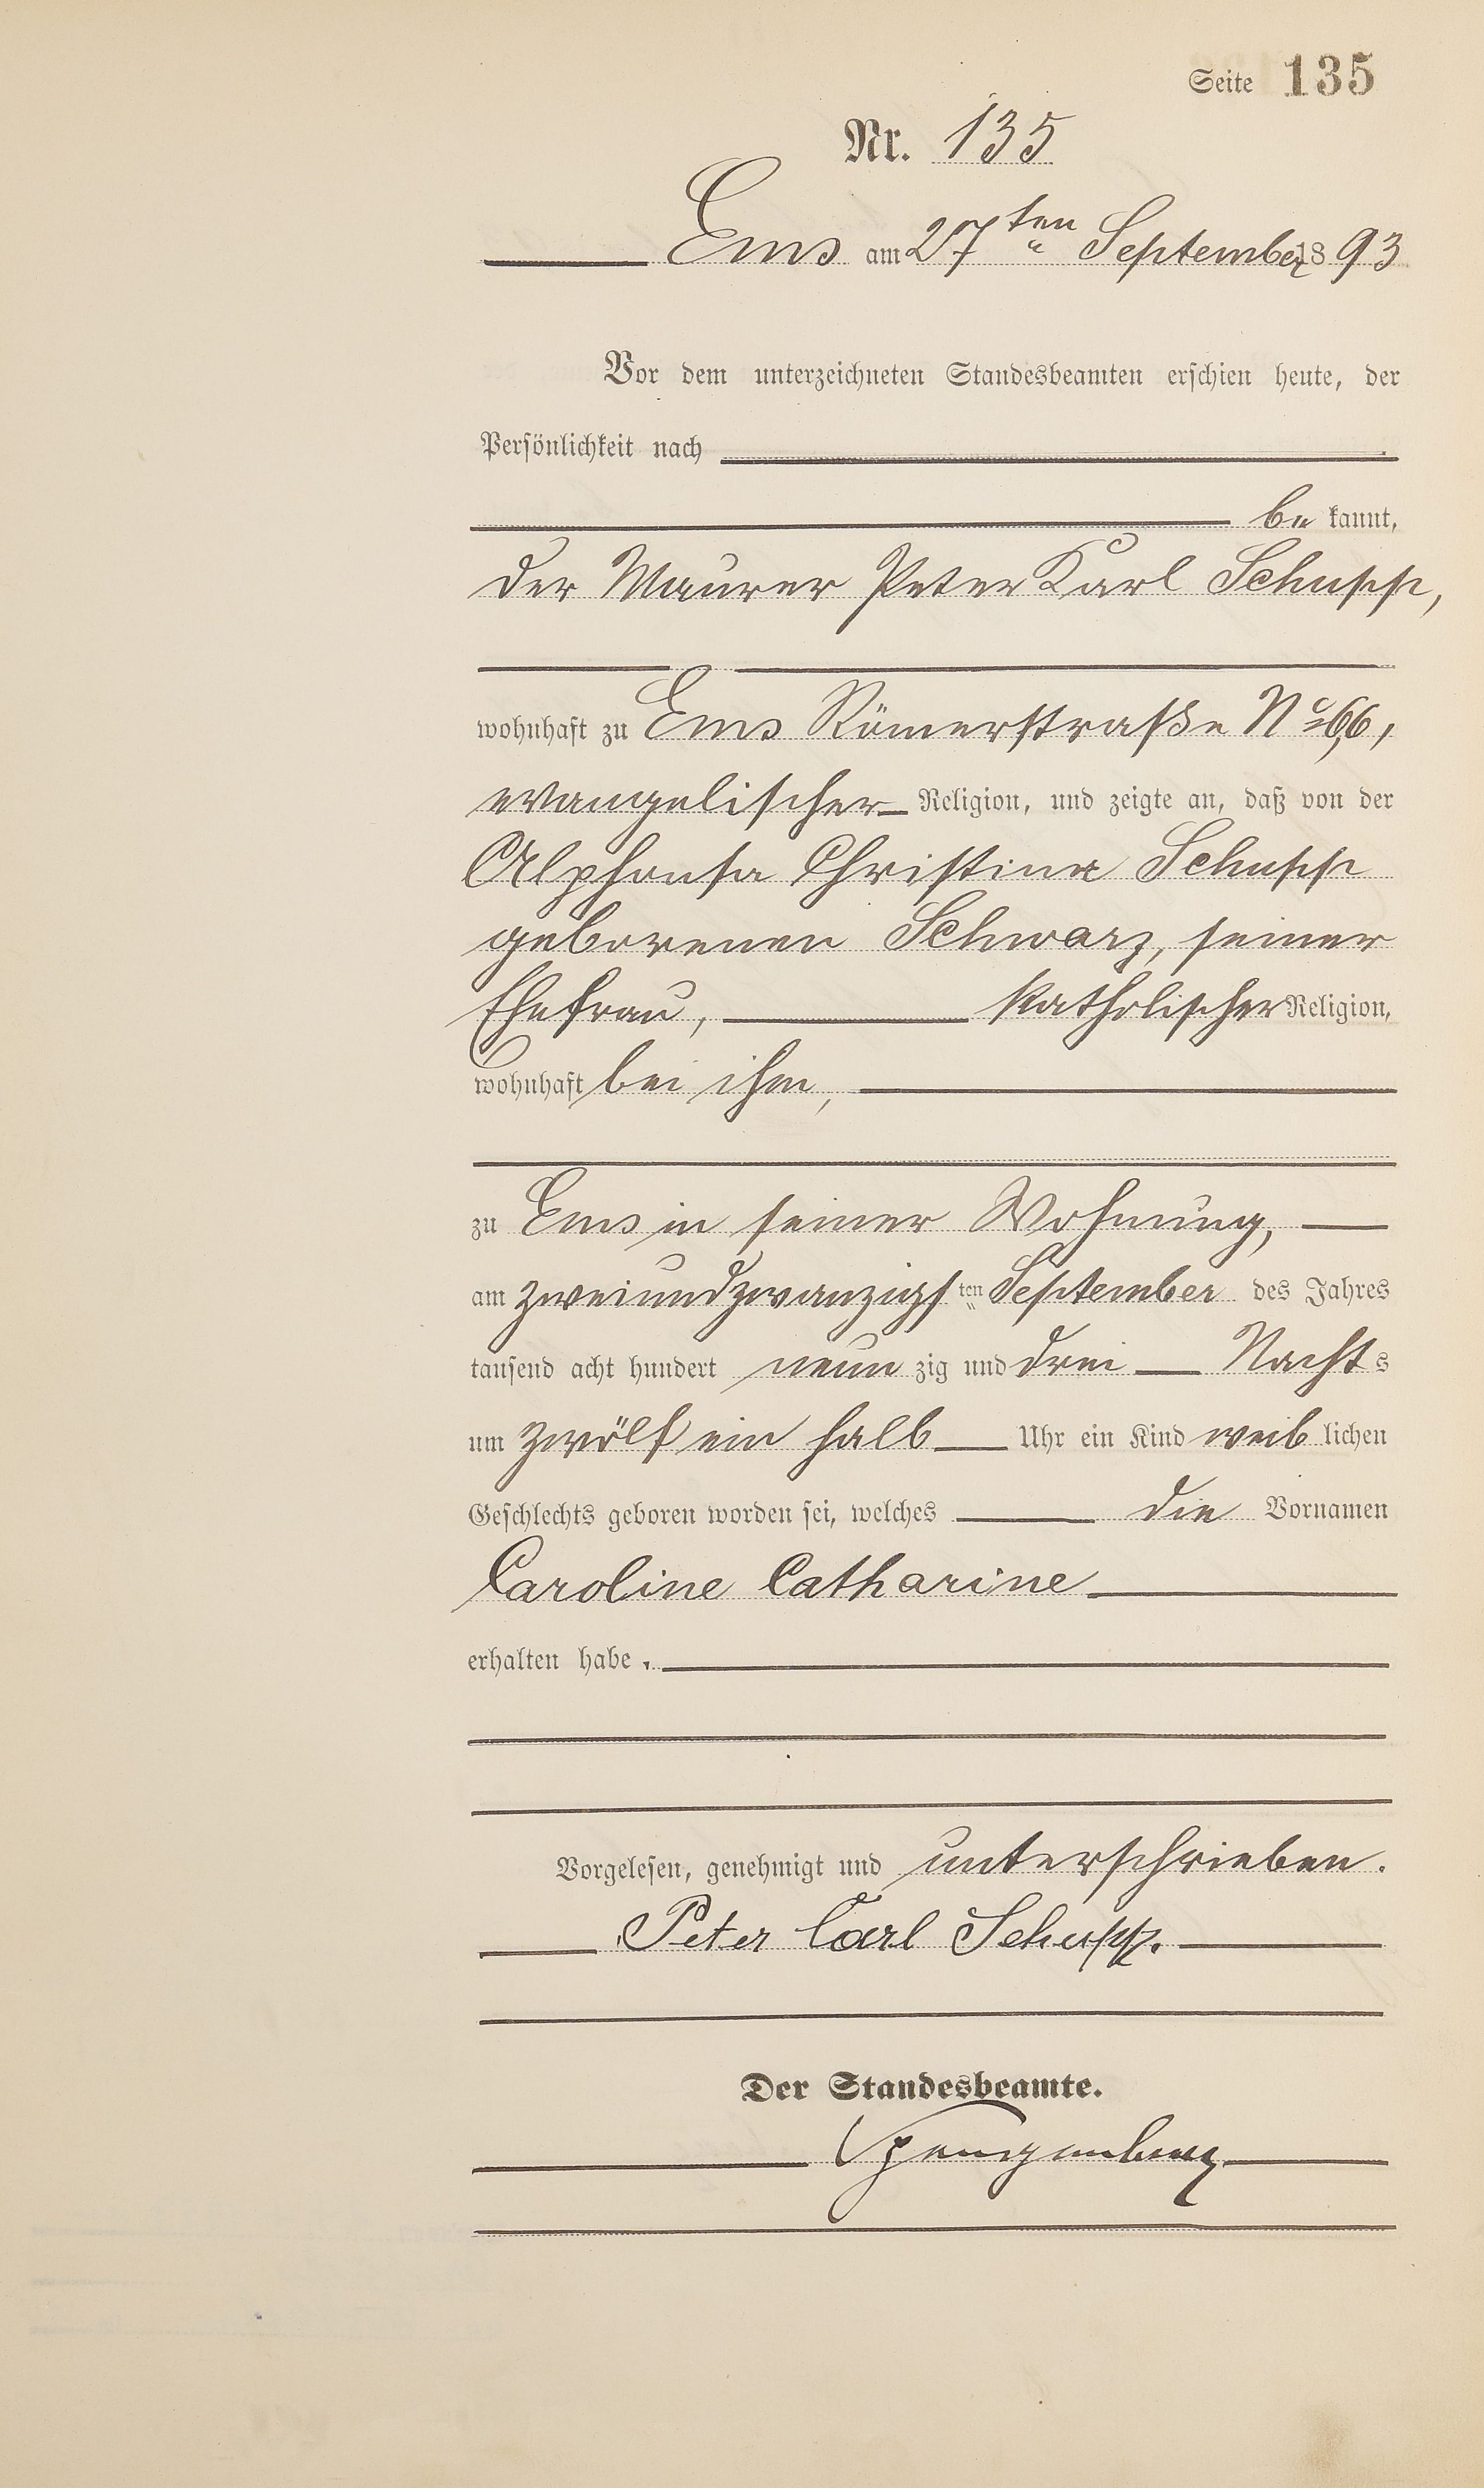 Seite 135
Nr. 135
Ems am 27ten September 1893
Vor dem unterzeichneten Standesbeamten erschien heute, der
Persönlichkeit nach
be kannt,
der Maurer Peter Karl Schupp,
wohnhaft zu Ems Römerstraße No 66,
evangelischer Religion, und zeigte an, daß von der
Alphonsa Christina Schupp
geborenen Schwarz, seiner
Ehefrau, katholischer Religion,
wohnhaft bei ihm,
zu Ems in seiner Wohnung,
am zweiundzwanzigsten September des Jahres
tausend acht hundert neun zig und drei Nachts
um zwölf ein halb Uhr ein Kind weib lichen
Geschlechts geboren worden sei, welches die Vornamen
Caroline Catharine
erhalten habe.
Vorgelesen, genehmigt und unterschrieben.
Peter Carl Schupp.
Der Standesbeamte.